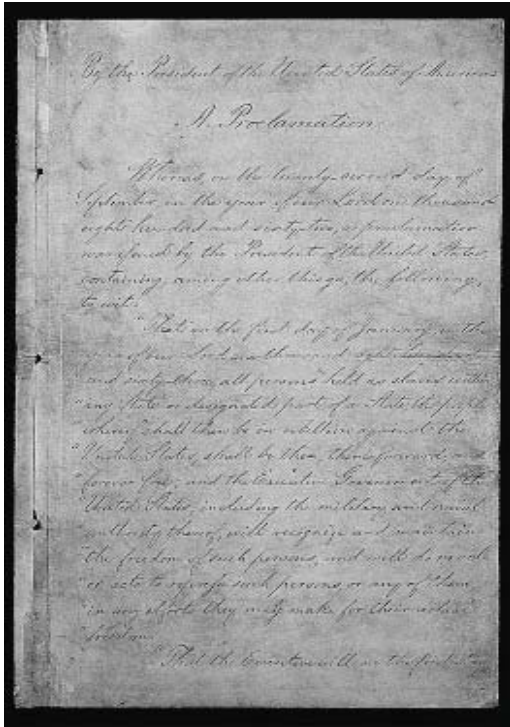 By the President of the United States of America
A Proclamation.
Whereas, on the twenty-second day of
September, in the year of our Lord one thousand
eight hundred and sixty-two, a proclamation
was issued by the President of the United States,
containing, among other things, the following,
to wit:
"That on the first day of January, in the
year of our Lord one thousand eight hundred
and sixty-three, all persons held as slaves within
"any State or designated part of a State, the people
"whereof shall then be in rebellion against the
"United States, shall be then, thenceforward, and
"forever free; and the Executive Government of the
"United States, including the military and naval
"authority thereof, will recognize and maintain
"the freedom of such persons, and will do no act
"or acts to repress such persons, or any of them,
"in any efforts they may make for their actual
"freedom.
"That the Executive will, on the first day